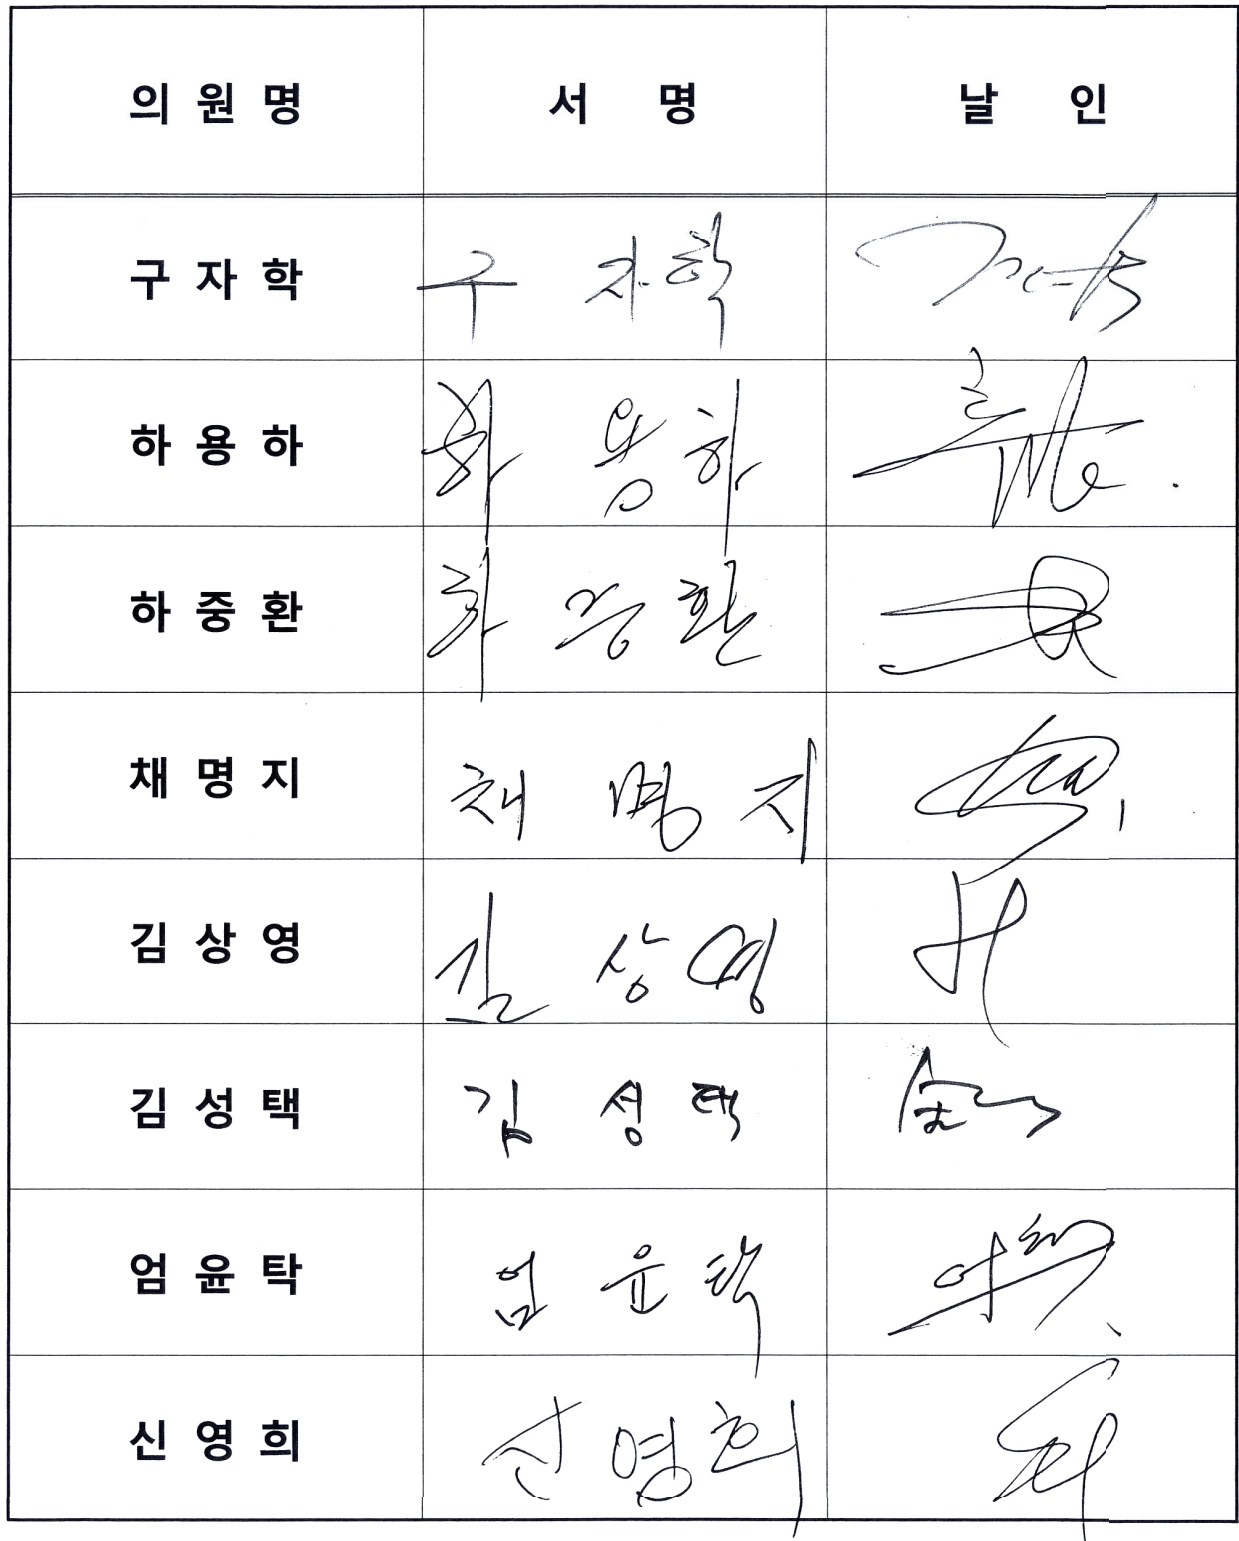 의 원 명 서 명 날 인
구 자 학 구 자 학
하 용 하 하 용 하
하 중 환 하 중 환
채 명 지 채 명 지
김 상 영 김 상 영
김 성 택 김 성 택
엄 윤 탁 엄 윤 탁
신 영 희 신 영 희